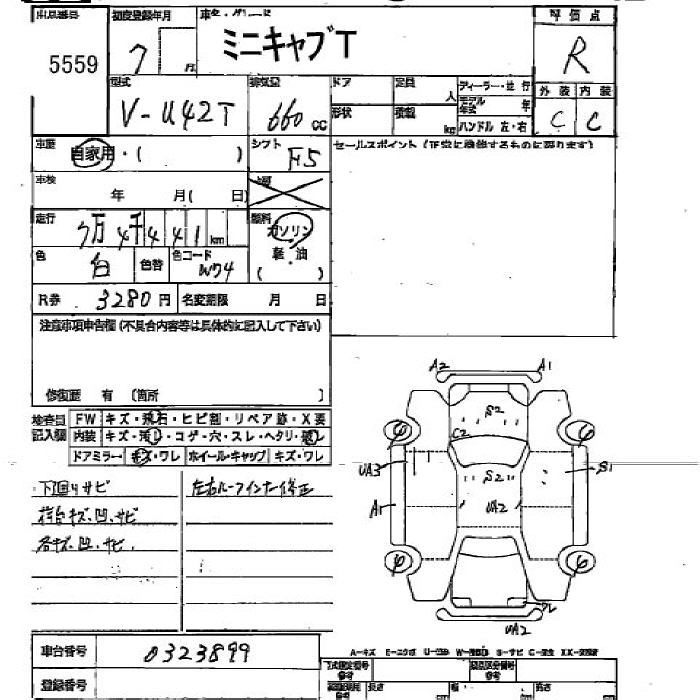 出品番号 初度登録年月 車名・グレード 評価点
5559 7 月 ミニキャブT R
型式 排気量 ドア 定員 ディーラー・並行 外装 内装
V-U42T 660 cc 人 モデル年式 年 C C
形状 積載 kg ハンドル 左・右
車歴 自家用・( ) シフト F5 セールスポイント(正常に機能するものに限ります)
車検 年 月( 日)
走行 7万4千441km 燃料 ガソリン
色 白 色替 色コード W74 軽・油
( )
R券 3280円 名変期限 月 日
注意事項申告欄(不具合内容等は具体的に記入して下さい)
修復歴 有 〔箇所 〕
検査員 FW キズ・飛石・ヒビ割・リペア跡・X要
記入欄 内装 キズ・汚レ・コゲ・穴・スレ・ヘタリ・破レ
ドアミラー キズ・ワレ ホイールキャップ キズ・ワレ
下回りサビ 左右ルーフインナー修正
荷台キズ、凹、サビ
各キズ、凹、サビ
A2 A1
S2
C2
UA3 S2 S1
A1 UA2
ワレ
UA2
車台番号 0323899
登録番号
A-キズ E-エクボ U-凹み W-補修跡 S-サビ C-腐食 XX-交換済
長さ 幅 高さ
cm cm cm